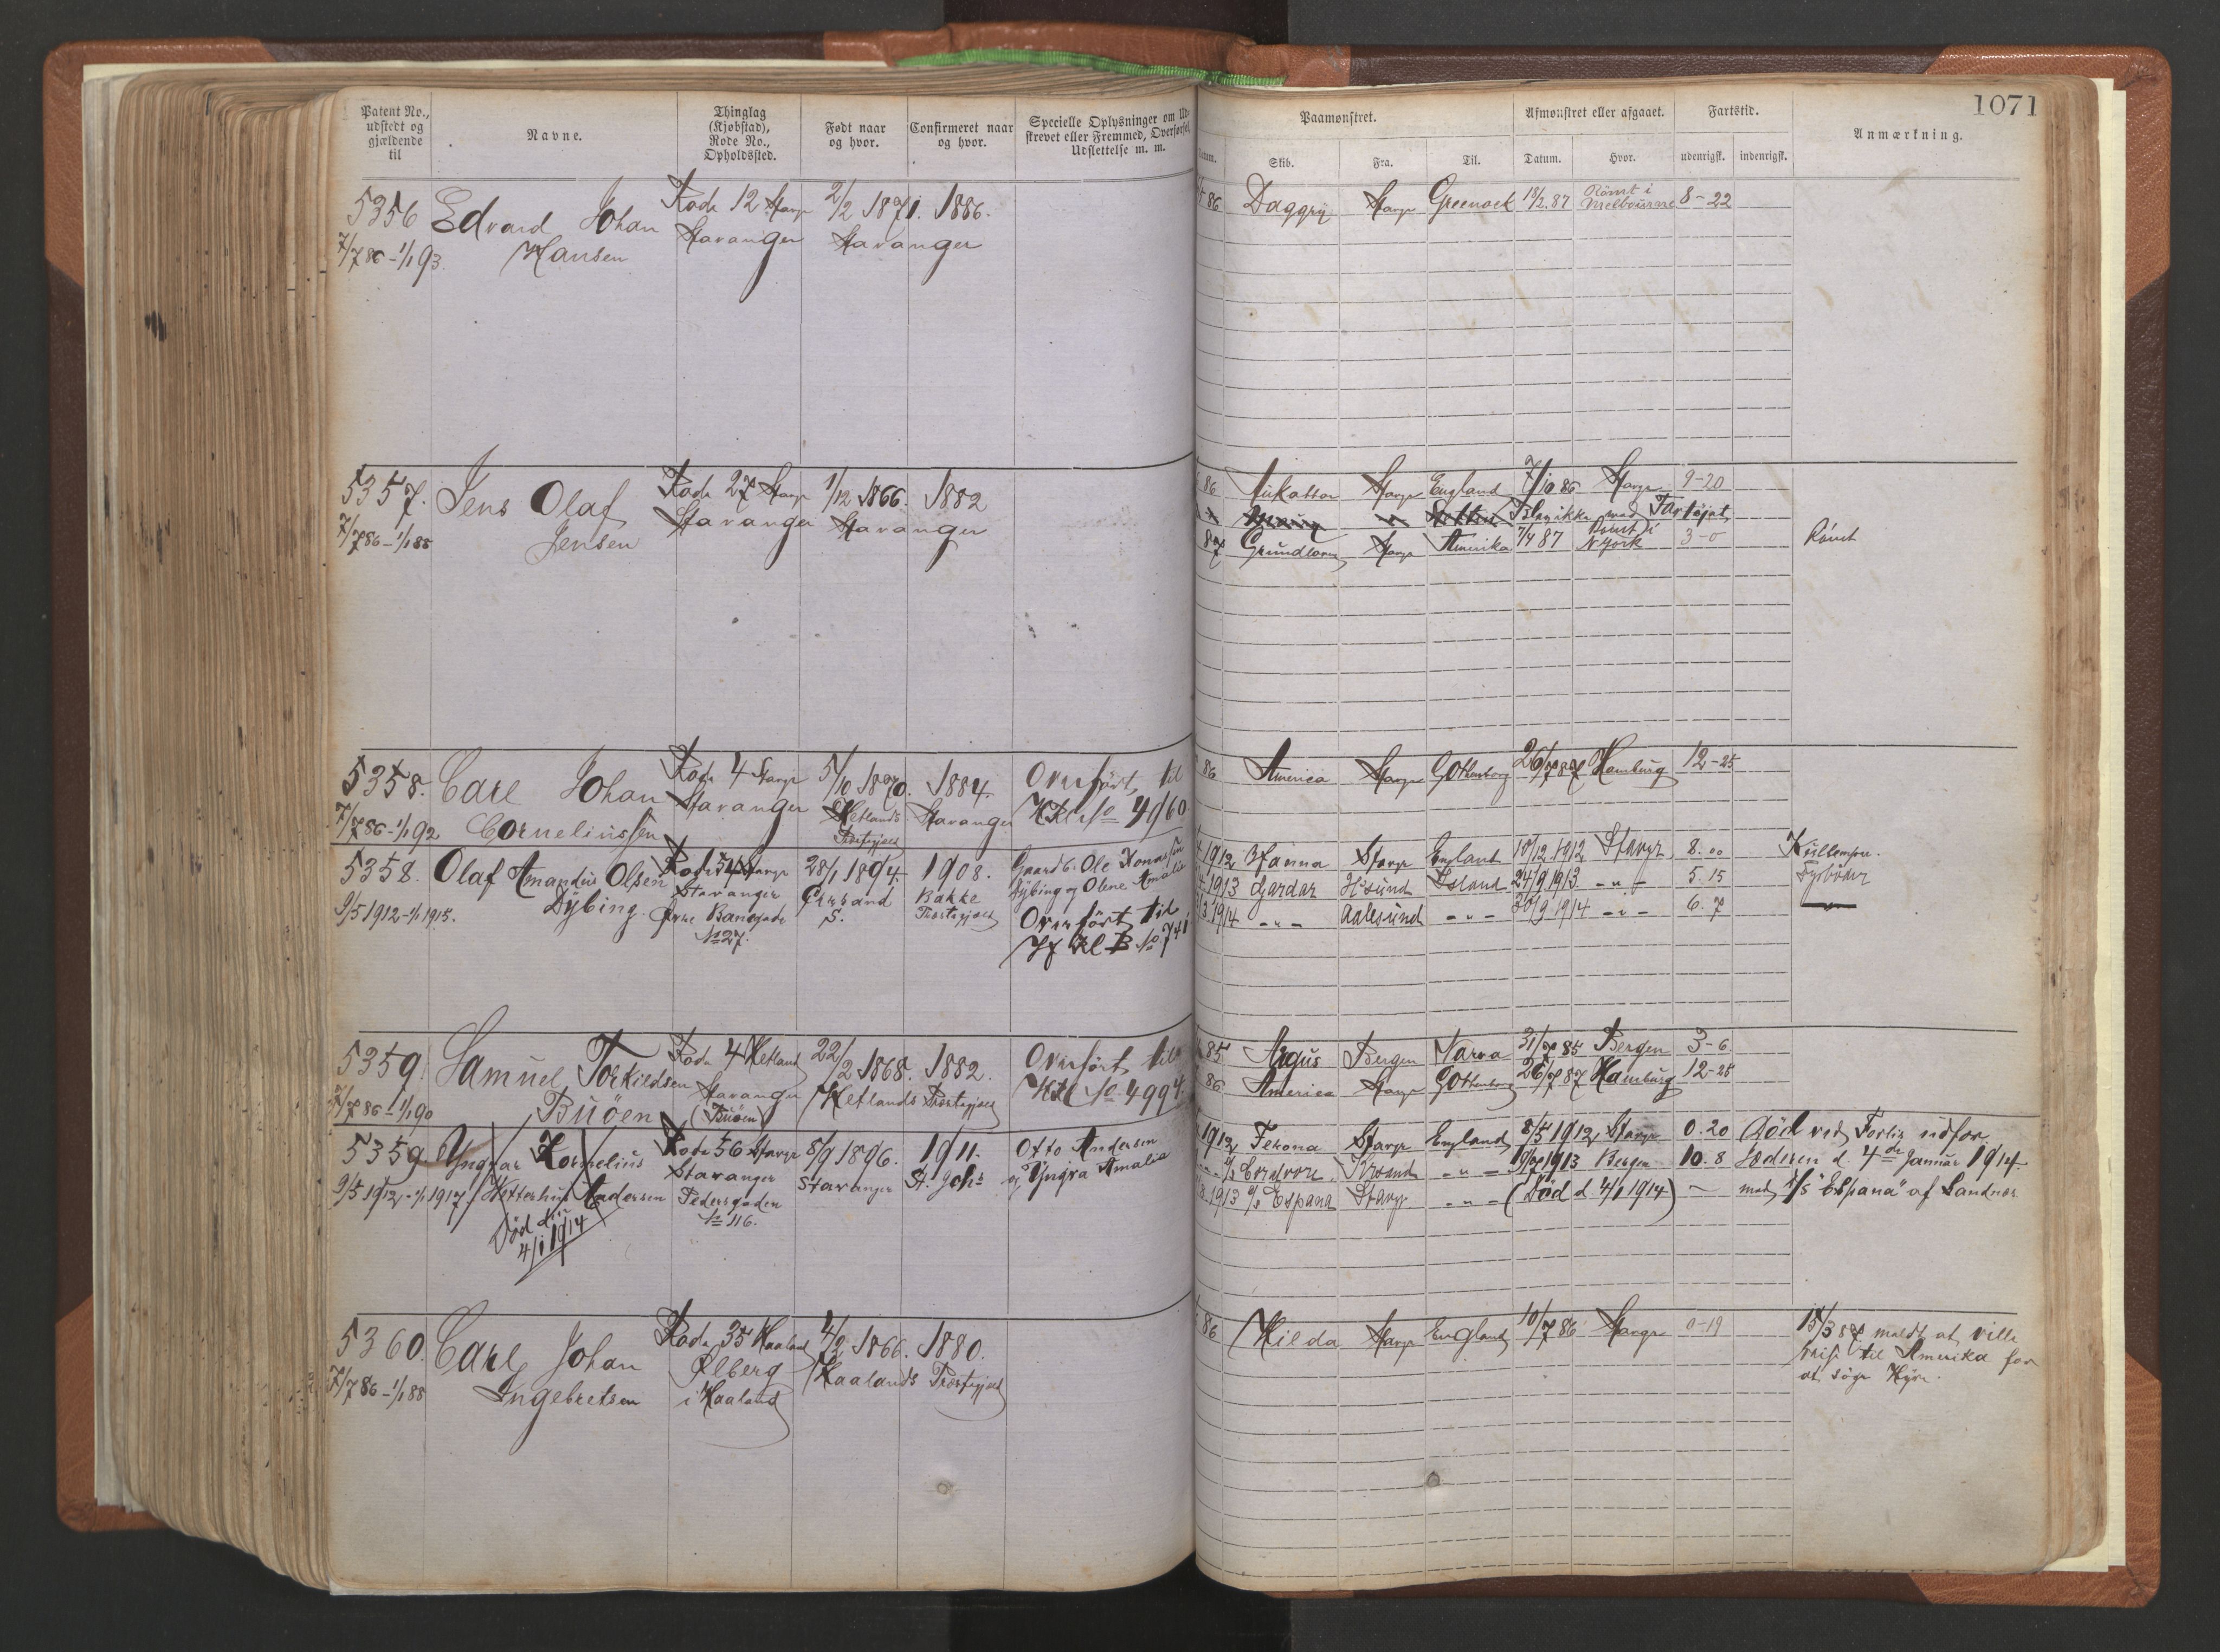 Patent No.,
udstedt og
gjældende
til
Navne.
Thinglag
(Kjøbstad),
Rode No.,
Opholdssted.
Født naar
og hvor.
Confirmeret naar
og hvor.
Specielle Oplysninger om Ud-
skrevet eller Fremmed, Overførsel,
Udslettelse m. m.
Paamønstret.
Skib.
Fra.
Til.
Afmønstret eller afgaaet.
Datum.
Hvor.
Fartstid.
udenrigsk.
indenrigsk.
Anmærkning.
1071
5356
7/7 86 - 1/1 93
Edvard Johan
Hansen
Rode 12 Stavgr
Stavanger
2/2 1871.
Stavanger
1886.
86 Daggry Stavgr Greenock 18/2.87 Römt i
Melbourne 8-22
5357.
7/7 86 - 1/1 88
Jens Olaf
Jensen
Rode 27 Stavgr
Stavanger
1/12 1866.
Stavanger
1882
86 Stavgr England 7/10 86 Stavgr 9-20
med Fartöjet
87 Stavgr Amerika 7/4 87 Römt i
N York 3-0 Römt
5358.
7/7 86 - 1/1 92
Carl Johan
Corneliussen
Rode 4 Stavgr
Stavanger
5/10 1870.
Hetlands
Præstegjæld
1884.
Stavanger
Overfört til
No 4960
86 America Stavgr Gothenborg 26/7 87 Hamburg 12-25
5358.
9/5 1912 - 1/1 1915.
Olaf Amandus Olsen
Dybing
Rode 54 Stavgr
Stavanger
Øvre Banegade
No 27.
28/1 1894.
Chrsand
S.
1908.
Bakke
Præstegjæld
Gaardbr. Ole Jonassen
Dybing og Olene Amalie
Overfört til
Kl B No 741
1912 Hanna Stavgr England 10/12 1912 Stavgr 8.00
1913 Gardar H.sund Island 24/9 1913 - " - 5.15
1914 - " - Aalesund - " - 30/9 1914 - " - 6.7
5359.
7/7 86 - 1/1 90
Samuel Torkildsen
Buöen
Rode 4 Hetland
Stavanger
(Buöen)
22/2 1868.
Hetlands Præstegjæld
1882.
Overfört til
No 4994
85 Argus Bergen Narva 31/7 85 Bergen 3-6
86 America Stavgr Gothenborg 26/7 87 Hamburg 12-25
5359.
9/5 1912 - 1/1 1917
Yngvar Kornelius
Ketterhus Andersen
Död den
4/1 1914
Rode 56 Stavgr
Stavanger
Pedersgaden
No 116.
8/9 1896.
Stavanger
1911.
St. Johs
Otto Andersen
og Yngva Amalia
1912 Ferona Stavgr England 8/5 1912 Stavgr 0.20 Död ved Forlis udfor
Krsand - " - 1913 Bergen 10.8 d. 4de Januar 1914
1913 s/s España Stavgr - " - (Död d 4/1 1914) - med s/s "España" af Sandnes
5360.
7/7 86 - 1/1 88
Carl Johan
Ingebretsen
Rode 35 Haaland
Ølberg
i Haaland
4/2 1866.
Haalands Præstegjæld
1880.
86 Hilda Stavgr England 10/7 86 Stavgr 0-19
15/3 87 meldt at ville
reise til Amerika for
at söge Hyre.